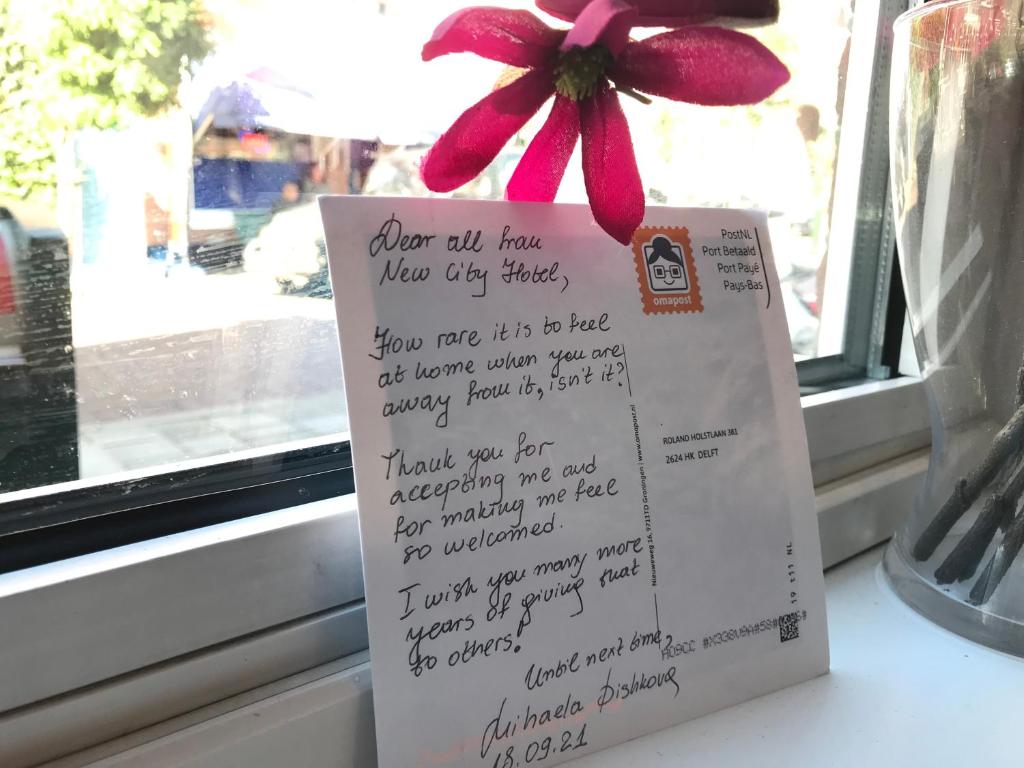 Dear all from
New City Hotel,
How rare it is to feel
at home when you are
away from it, isn't it?
Thank you for
accepting me and
for making me feel
so welcomed.
I wish you many more
years of giving that
to others!
Until next time,
Mihaela Dishkova
18.09.21
omapost
PostNL
Port Betaald
Port Payé
Pays-Bas
Nieuweweg 16, 9711TD Groningen | www.omapost.nl
ROLAND HOLSTLAAN 381
2624 HK DELFT